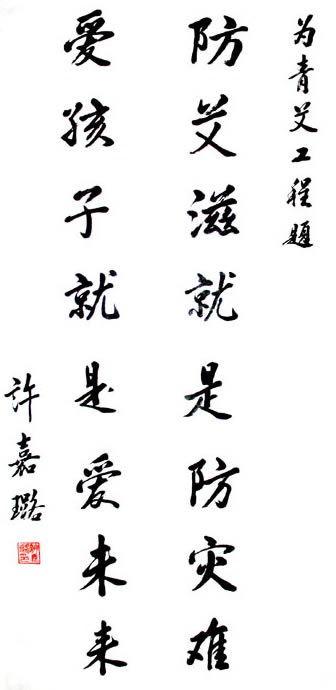 为青艾工程题
防艾滋就是防灾难
爱孩子就是爱未来
许嘉璐